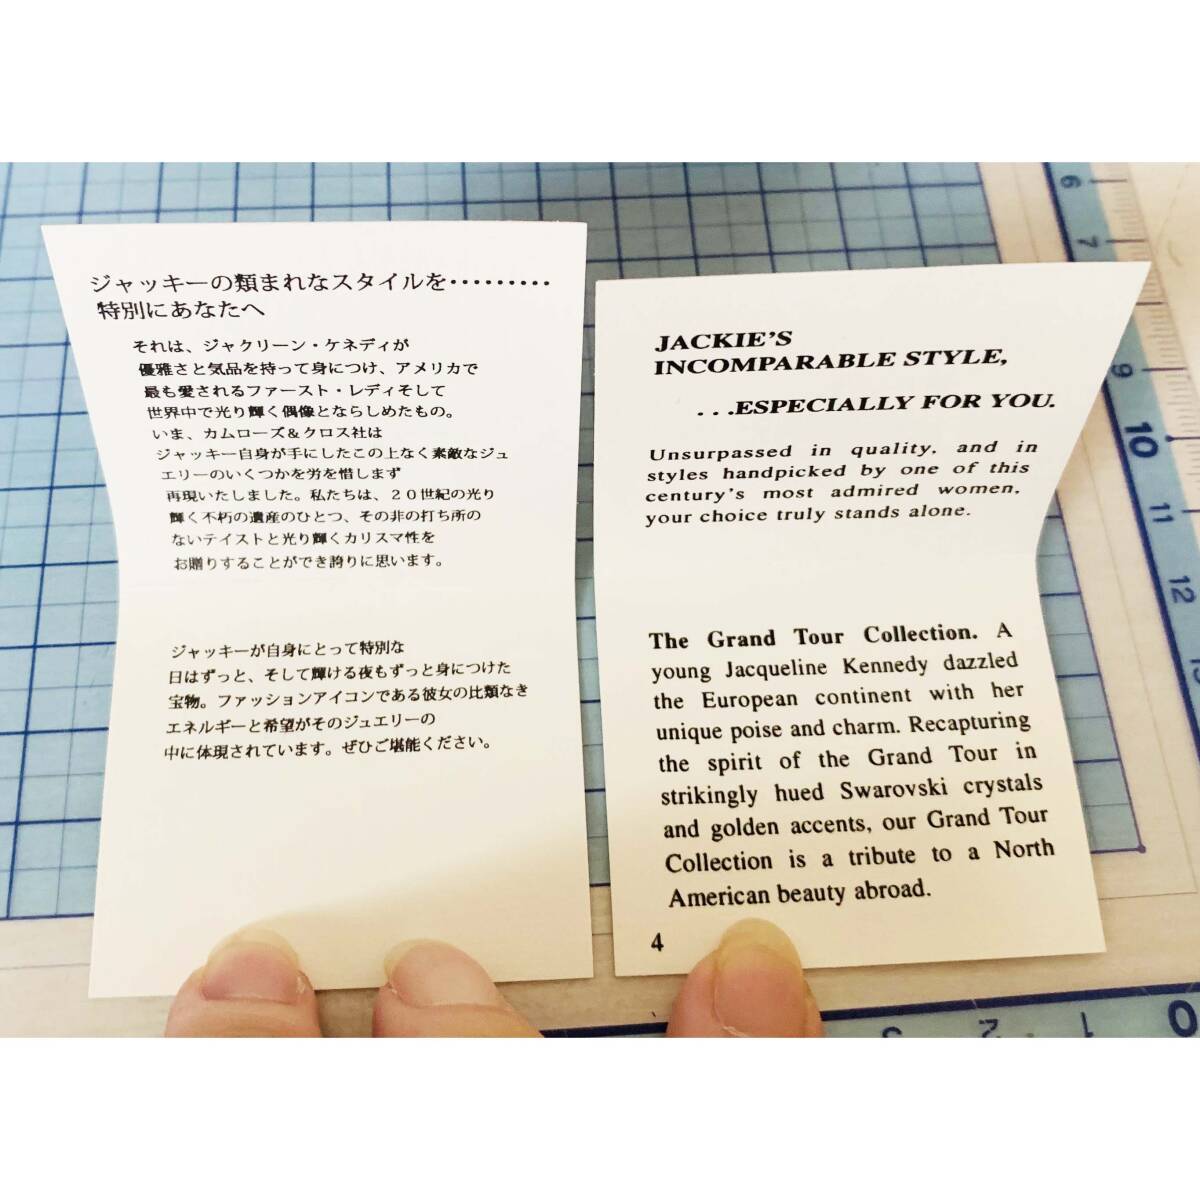 ジャッキーの類まれなスタイルを・・・・・・・・・
特別にあなたへ
それは、ジャクリーン・ケネディが
優雅さと気品を持って身につけ、アメリカで
最も愛されるファースト・レディそして
世界中で光り輝く偶像とならしめたもの。
いま、カムローズ＆クロス社は
ジャッキー自身が手にしたこの上なく素敵なジュ
エリーのいくつかを労を惜しまず
再現いたしました。私たちは、２０世紀の光り
輝く不朽の遺産のひとつ、その非の打ち所の
ないテイストと光り輝くカリスマ性を
お贈りすることができ誇りに思います。
ジャッキーが自身にとって特別な
日はずっと、そして輝ける夜もずっと身につけた
宝物。ファッションアイコンである彼女の比類なき
エネルギーと希望がそのジュエリーの
中に体現されています。ぜひご堪能ください。
JACKIE'S
INCOMPARABLE STYLE,
. . .ESPECIALLY FOR YOU.
Unsurpassed in quality, and in
styles handpicked by one of this
century's most admired women,
your choice truly stands alone.
The Grand Tour Collection. A
young Jacqueline Kennedy dazzled
the European continent with her
unique poise and charm. Recapturing
the spirit of the Grand Tour in
strikingly hued Swarovski crystals
and golden accents, our Grand Tour
Collection is a tribute to a North
American beauty abroad.
4
6
7
9
10
11
12
13
3
2
1
0